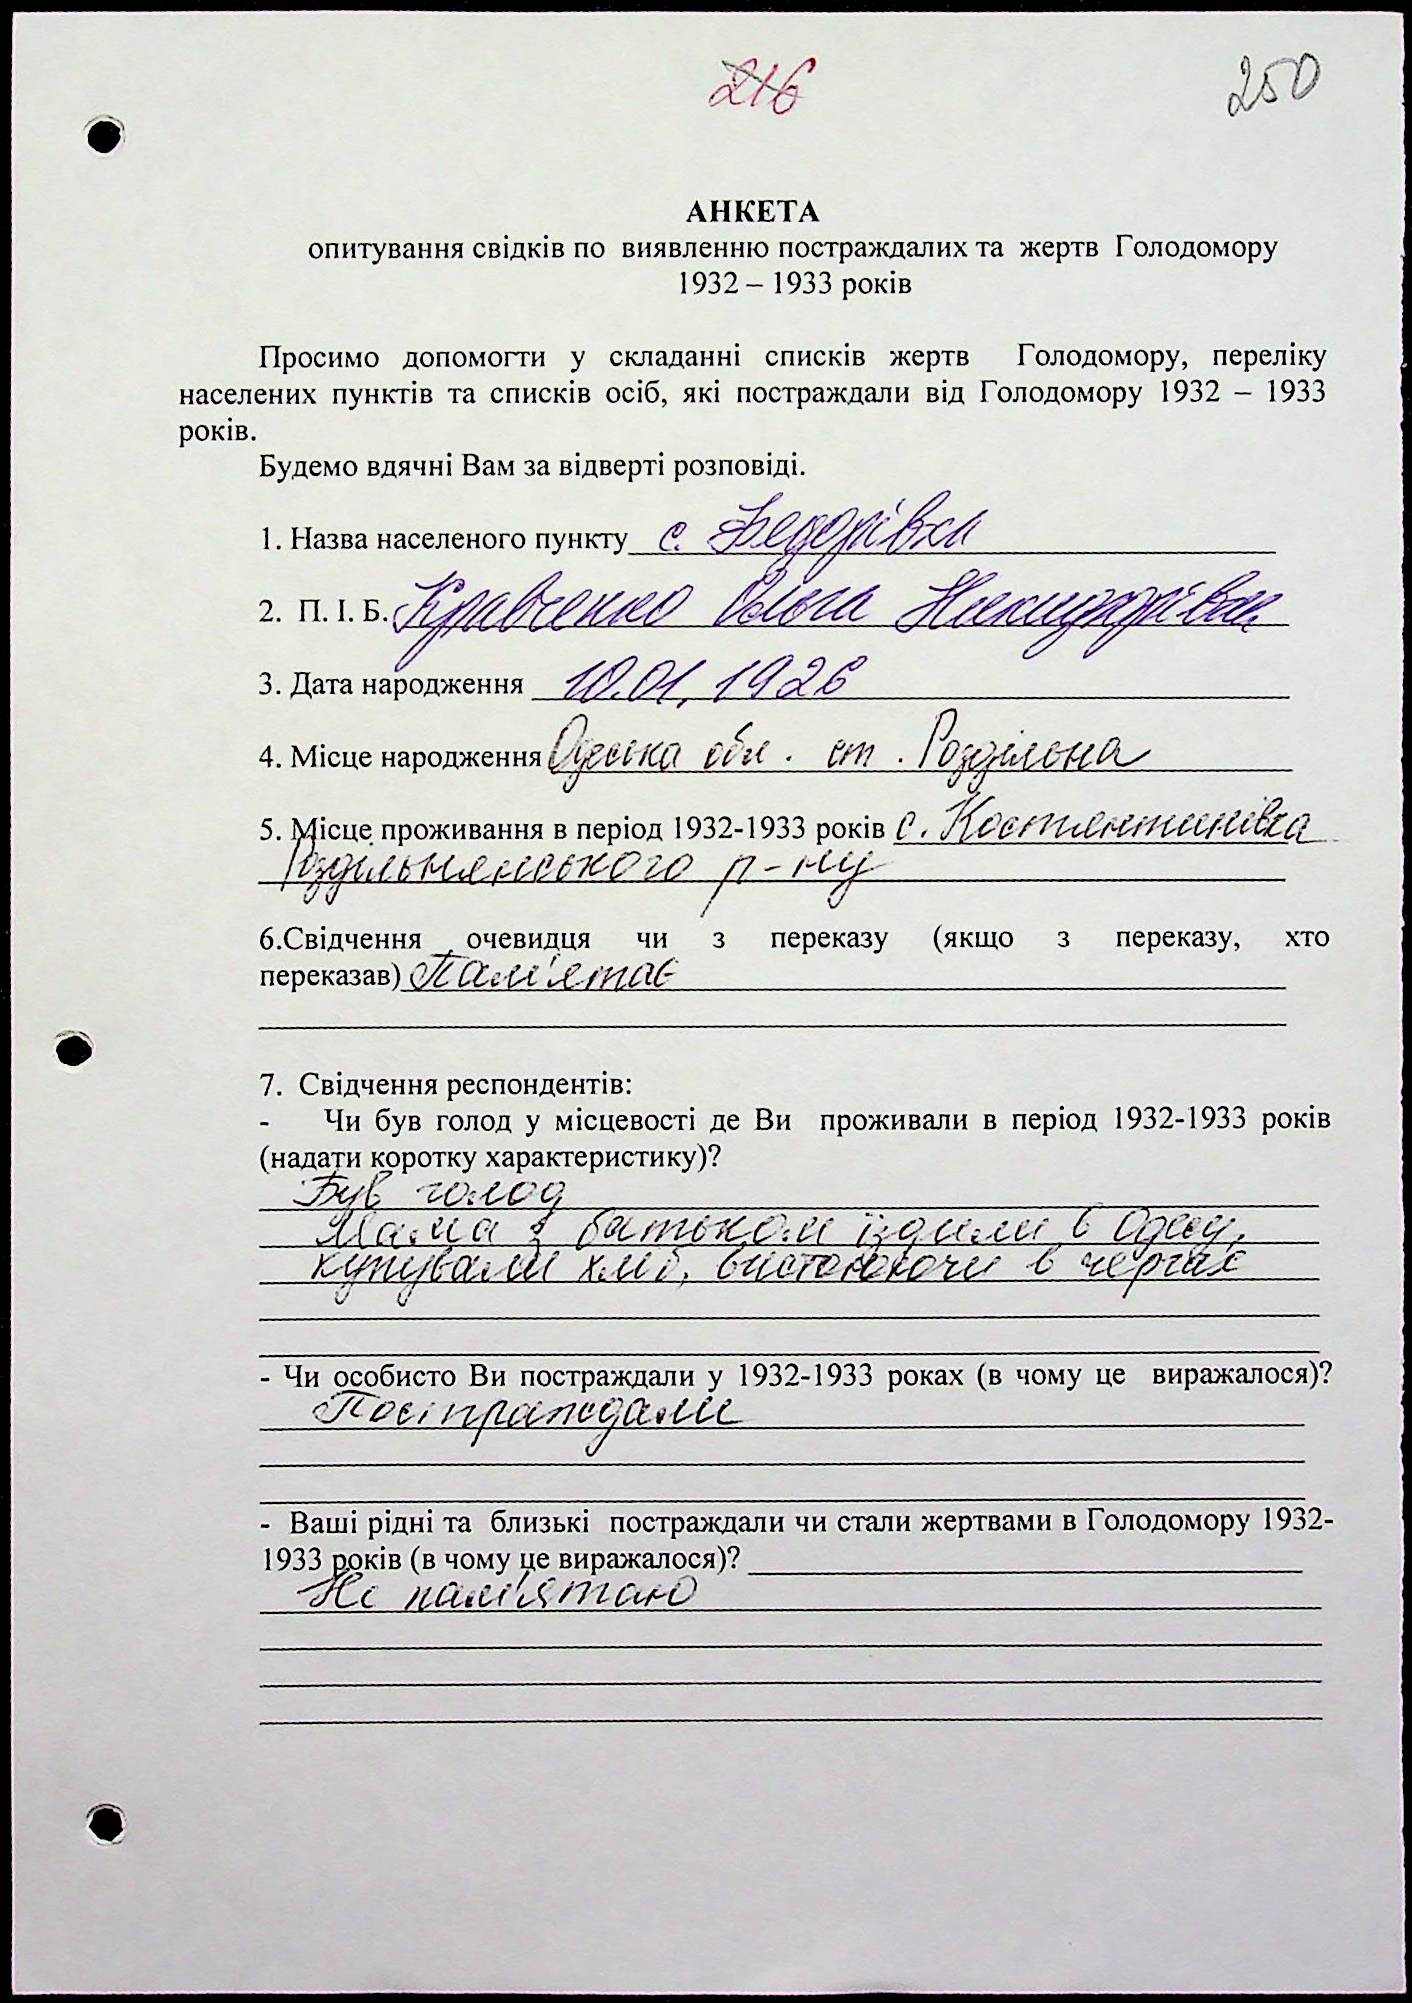 216
250
АНКЕТА
опитування свідків по виявленню постраждалих та жертв Голодомору
1932 – 1933 років
Просимо допомогти у складанні списків жертв Голодомору, переліку
населених пунктів та списків осіб, які постраждали від Голодомору 1932 – 1933
років.
Будемо вдячні Вам за відверті розповіді.
1. Назва населеного пункту с. Федорівка
2. П. І. Б. Кравченко Ольга Никифорівна
3. Дата народження 10.01.1926
4. Місце народження Одеська обл. ст. Роздільна
5. Місце проживання в період 1932-1933 років с. Костянтинівка
Роздільнянського р-ну
6.Свідчення очевидця чи з переказу (якщо з переказу, хто
переказав) Пам'ятає
7. Свідчення респондентів:
- Чи був голод у місцевості де Ви проживали в період 1932-1933 років
(надати коротку характеристику)?
Був голод
Мама з батьком їздили в Одесу,
купували хліб, вистоюючи в чергах
- Чи особисто Ви постраждали у 1932-1933 роках (в чому це виражалося)?
Постраждали
- Ваші рідні та близькі постраждали чи стали жертвами в Голодомору 1932-
1933 років (в чому це виражалося)?
Не пам'ятаю